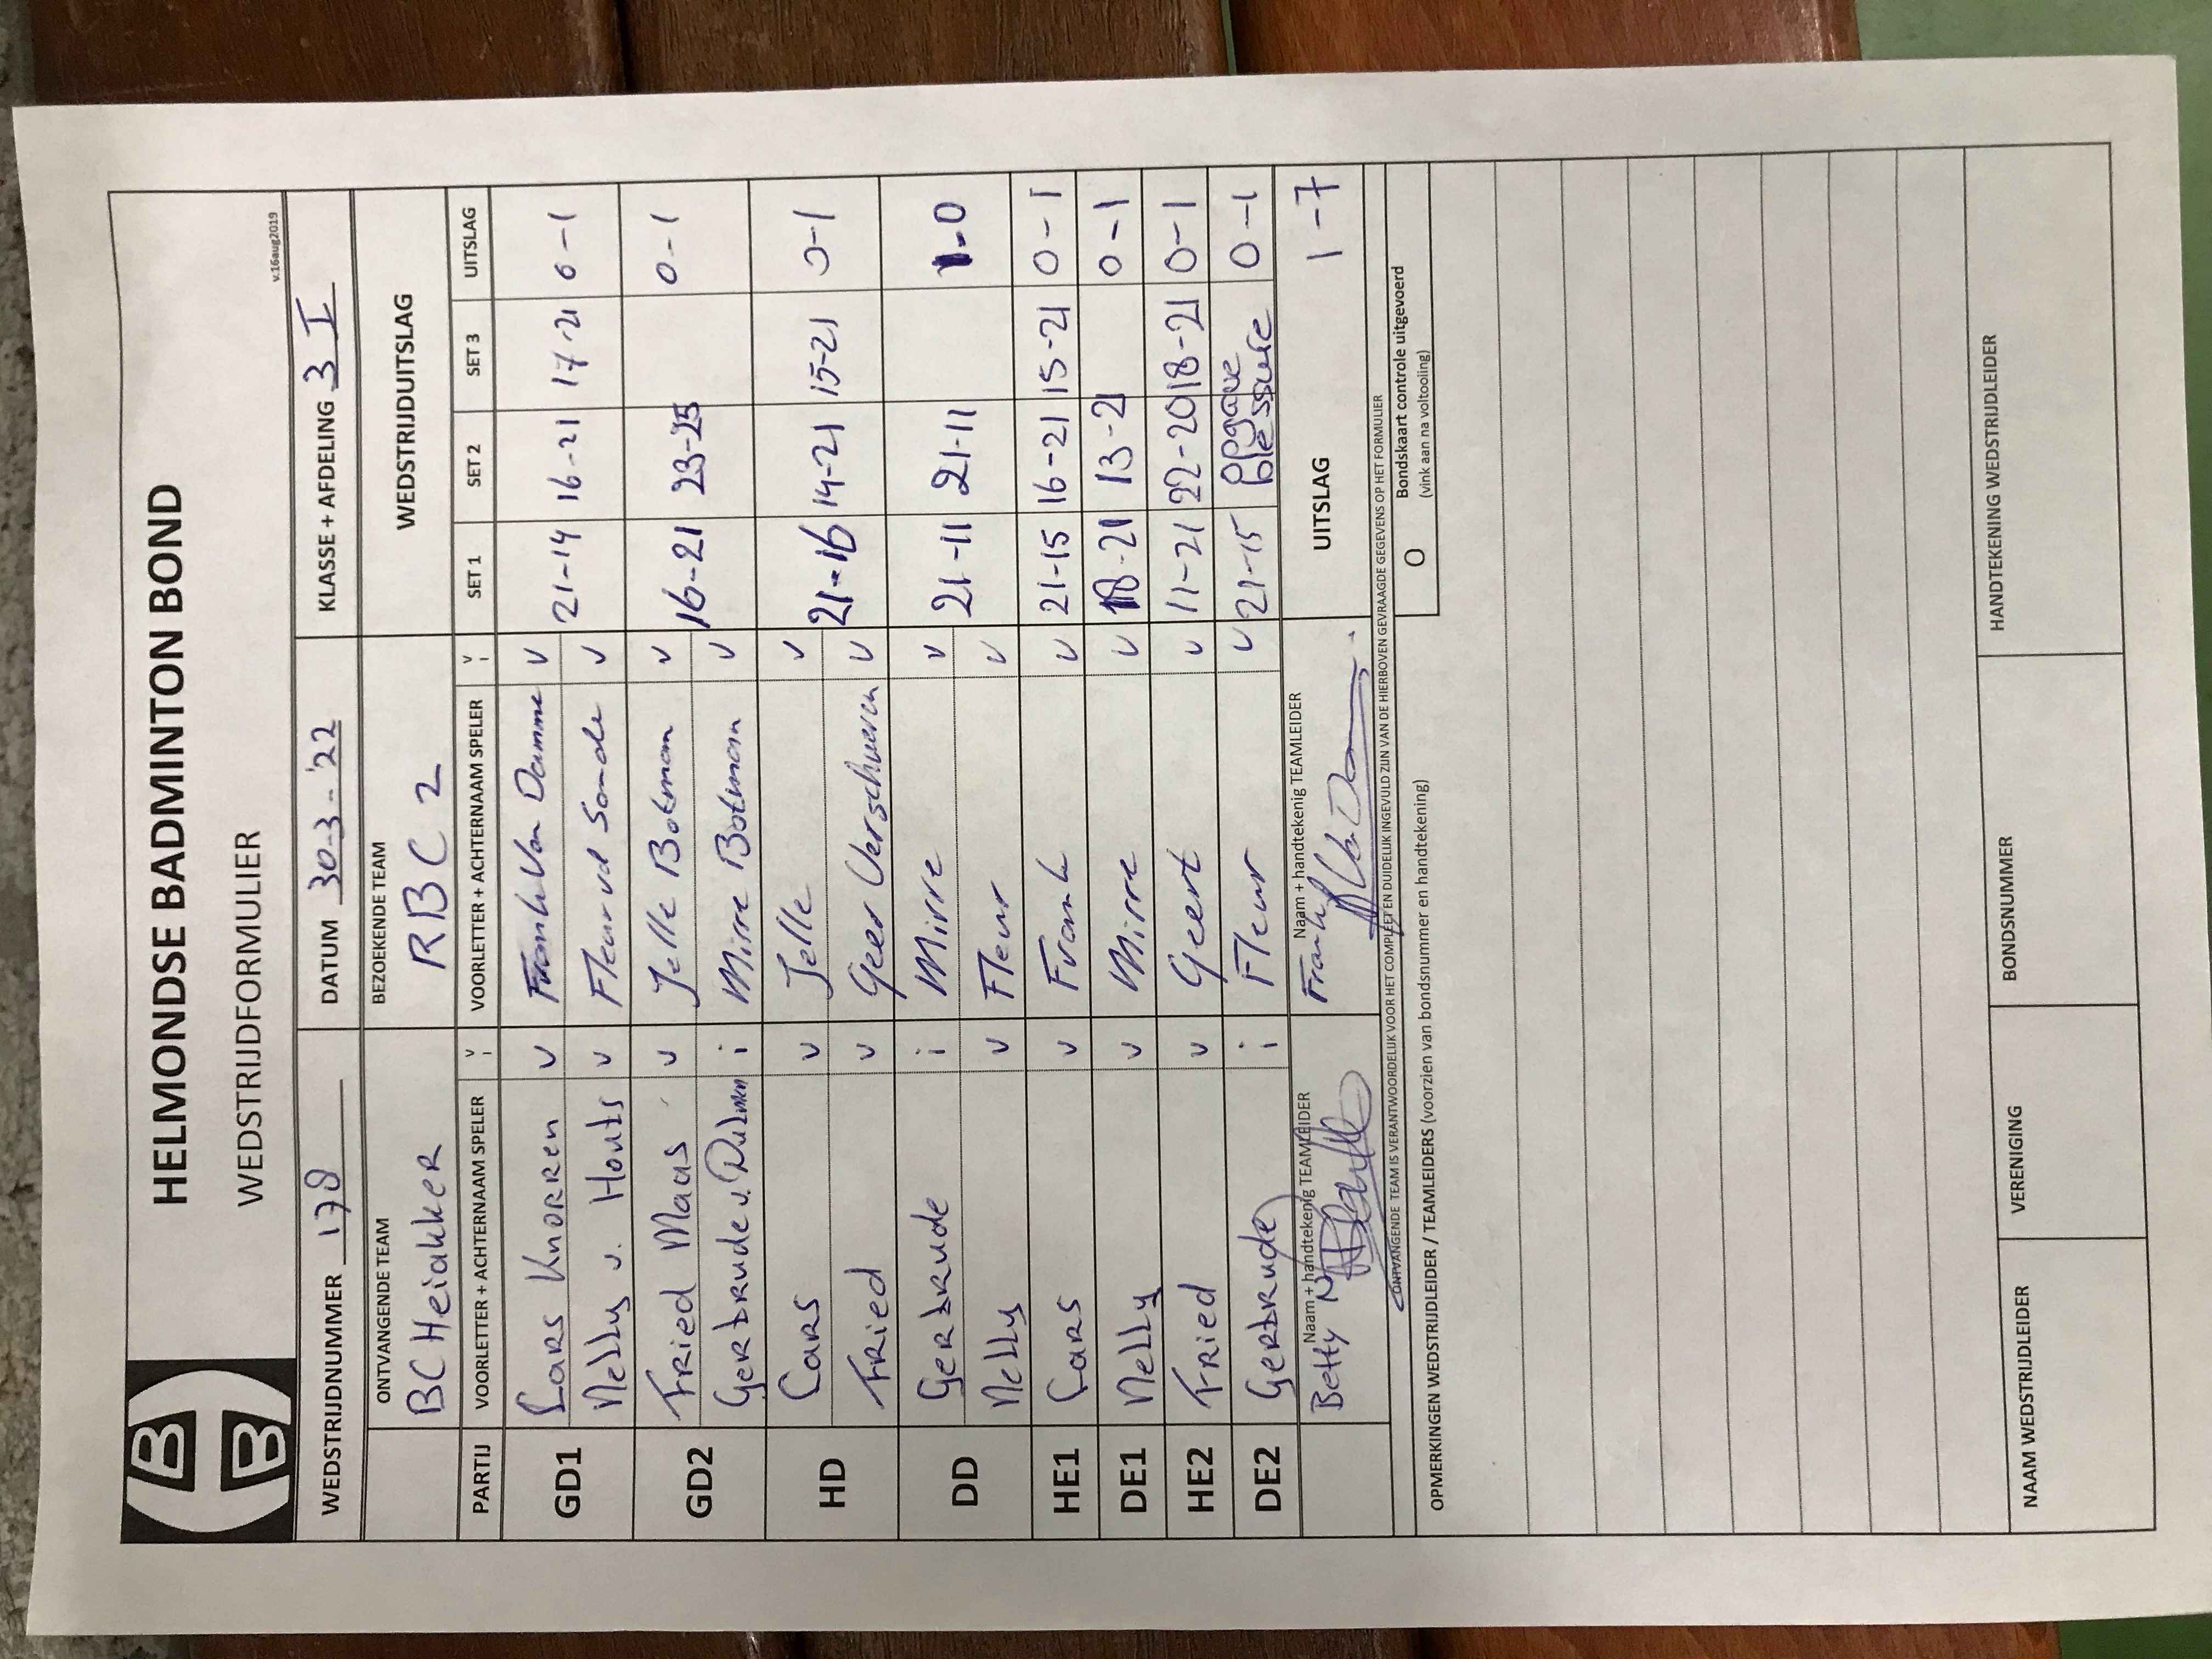 HELMONDSE BADMINTON BOND
WEDSTRIJDFORMULIER
v.16aug2019
WEDSTRIJDNUMMER 178 DATUM 30-3-'22 KLASSE + AFDELING 3 I
ONTVANGENDE TEAM BEZOEKENDE TEAM WEDSTRIJDUITSLAG
BC Heiakker RBC 2
PARTIJ VOORLETTER + ACHTERNAAM SPELER v i VOORLETTER + ACHTERNAAM SPELER v i SET 1 SET 2 SET 3 UITSLAG
GD1 Lars Knorren v Frank Van Damme v 21-14 16-21 17-21 0-1
Nelly v. Houts v Fleur vd Sande v
GD2 Fried Maas v Jelle Botman v 16-21 23-25 0-1
Gertrude v. i Mirre Botman v
HD Lars v Jelle v 21-16 14-21 15-21 0-1
Fried v Geer Verschuren v
DD Gertrude i Mirre v 21-11 21-11 1-0
Nelly v Fleur v
HE1 Lars v Frank v 21-15 16-21 15-21 0-1
DE1 Nelly v Mirre v 18-21 13-21 0-1
HE2 Fried v Geert v 11-21 22-20 18-21 0-1
DE2 Gertrude i Fleur v 21-15 opgave blessure 0-1
Naam + handtekenig TEAMLEIDER Naam + handtekenig TEAMLEIDER UITSLAG 1-7
Betty N Frank
ONTVANGENDE TEAM IS VERANTWOORDELIJK VOOR HET COMPLEET EN DUIDELIJK INGEVULD ZIJN VAN DE HIERBOVEN GEVRAAGDE GEGEVENS OP HET FORMULIER
O Bondskaart controle uitgevoerd
(vink aan na voltooling)
OPMERKINGEN WEDSTRIJDLEIDER / TEAMLEIDERS (voorzien van bondsnummer en handtekening)
NAAM WEDSTRIJDLEIDER VERENIGING BONDSNUMMER HANDTEKENING WEDSTRIJDLEIDER